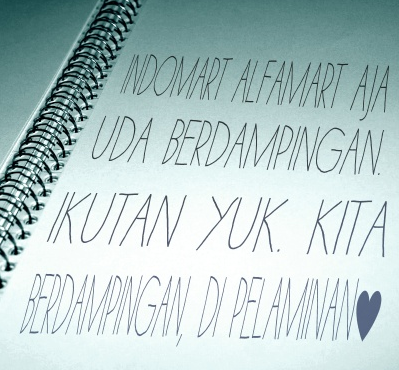 INDOMART ALFAMART AJA
UDA BERDAMPINGAN.
IKUTAN YUK. KITA
BERDAMPINGAN, DI PELAMINAN♥